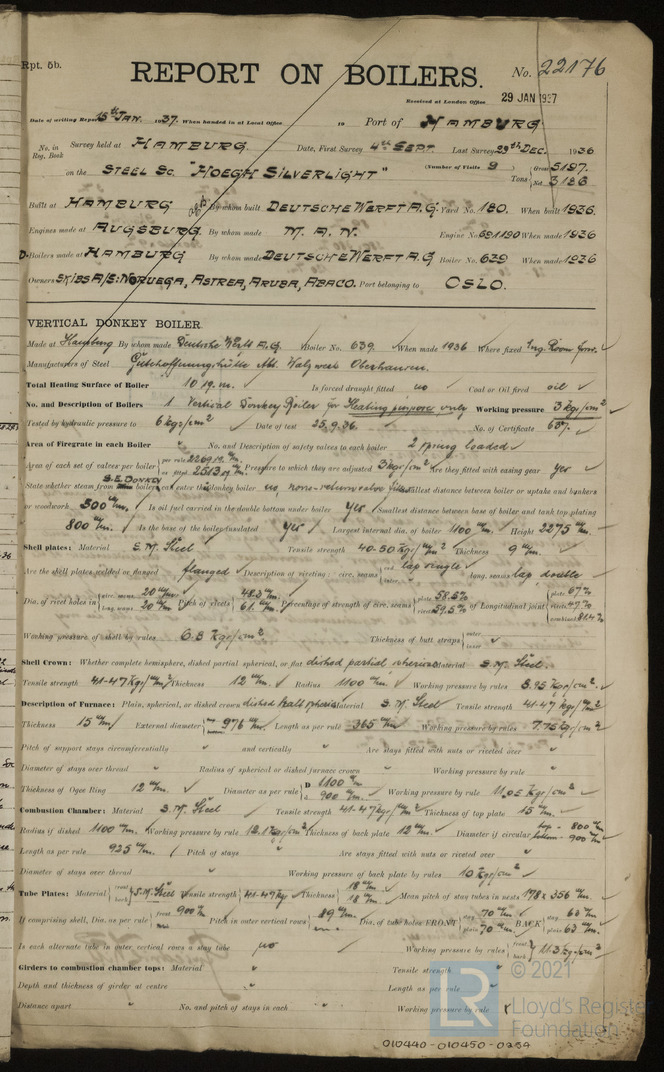 Rpt. 5b.
REPORT ON BOILERS.
No. 22176
Received at London Office 29 JAN 1937
Date of writing Report 15th JAN. 1937. When handed in at Local Office 19 Port of HAMBURG
No. in Reg. Book Survey held at HAMBURG Date, First Survey 4th SEPT. Last Survey 29th DEC. 1936
on the STEEL Sc. "HOEGH SILVERLIGHT" (Number of Visits 9 Tons Gross 5197. Net 3123
Built at HAMBURG By whom built DEUTSCHE WERFT A.G. Yard No. 180. When built 1936.
Engines made at AUGSBURG. By whom made M. A. N. Engine No. 691190 When made 1936
Boilers made at HAMBURG By whom made DEUTSCHE WERFT A.G Boiler No. 639 When made 1936
Owners SKIBS A/S: NORUEGA, ASTREA, ARUBA, ABACO. Port belonging to OSLO.
VERTICAL DONKEY BOILER.
Made at Hamburg By whom made Deutsche Werft A.G. Boiler No. 639. When made 1936 Where fixed Eng. Room forw.
Manufacturers of Steel Gutehoffnungshütte Abt. Walzwerk Oberhausen.
Total Heating Surface of Boiler 10 qr. m. Is forced draught fitted no Coal or Oil fired oil
No. and Description of Boilers 1 Vertical Donkey Boiler for Heating purposes only Working pressure 3 kgs/cm²
Tested by hydraulic pressure to 6 kgs/cm² Date of test 25.9.36. No. of Certificate 637.
Area of Firegrate in each Boiler " No. and Description of safety valves to each boiler 2 spring loaded
Area of each set of valves per boiler per rule as fitted 2513 Pressure to which they are adjusted 3 kgs/cm² Are they fitted with easing gear yes
State whether steam from main boilers can enter the donkey boiler no, non-return valve fitted Smallest distance between boiler or uptake and bunkers
or woodwork 500 m/m. Is oil fuel carried in the double bottom under boiler yes Smallest distance between base of boiler and tank top plating
800 m/m. Is the base of the boiler insulated yes Largest internal dia. of boiler 1100 m/m. Height 2275 m/m.
Shell plates: Material S.M. Steel Tensile strength 40-50 kgs/m/m² Thickness 9 m/m.
Are the shell plates welded or flanged flanged Description of riveting: circ. seams end lap single inter. long. seams lap, double
Dia. of rivet holes in circ. seams 20 m/m long. seams 20 m/m Pitch of rivets 61 m/m. Percentage of strength of circ. seams plate 58.5% rivets 59.5% of Longitudinal joint plate 67% rivets 47% combined 81.4%
Working pressure of shell by rules 6.3 kgs/cm² Thickness of butt straps outer inner
Shell Crown: Whether complete hemisphere, dished partial spherical, or flat dished partial spherical Material S.M. Steel.
Tensile strength 41-47 kgs/m/m² Thickness 12 m/m Radius 1100 m/m. Working pressure by rules 8.95 kgs/cm².
Description of Furnace: Plain, spherical, or dished crown dished half spherical Material S.M. Steel Tensile strength 41-47 kgs/m/m²
Thickness 15 m/m External diameter top bottom 976 m/m Length as per rule 365 m/m Working pressure by rules 7.75 kgs/cm²
Pitch of support stays circumferentially " and vertically " Are stays fitted with nuts or riveted over "
Diameter of stays over thread " Radius of spherical or dished furnace crown " Working pressure by rule "
Thickness of Ogee Ring 12 m/m. Diameter as per rule D 1100 m/m d 900 m/m. Working pressure by rule 11.05 kgs/cm²
Combustion Chamber: Material S.M. Steel Tensile strength 41-47 kgs/m/m² Thickness of top plate 15 m/m.
Radius if dished 1100 m/m. Working pressure by rule 12.1 kgs/cm² Thickness of back plate 12 m/m. Diameter if circular top - 800 m/m bottom - 900 m/m
Length as per rule 925 m/m. Pitch of stays " Are stays fitted with nuts or riveted over "
Diameter of stays over thread " Working pressure of back plate by rules 10 kgs/cm²
Tube Plates: Material front back S.M. Steel Tensile strength 41-47 kgs Thickness 18 m/m 18 m/m. Mean pitch of stay tubes in nests 178 x 356 m/m.
If comprising shell, Dia. as per rule front 900 m/m back Pitch in outer vertical rows 89 m/m. Dia. of tube holes FRONT stay 70 m/m plain 70 m/m BACK stay 63 m/m plain 63 m/m.
Is each alternate tube in outer vertical rows a stay tube no Working pressure by rules front back 11.3 kgs/cm²
Girders to combustion chamber tops: Material " Tensile strength "
Depth and thickness of girder at centre " Length as per rule "
Distance apart " No. and pitch of stays in each " Working pressure by rule "
LR © 2021
Lloyd's Register
Foundation
010440-010450-0259